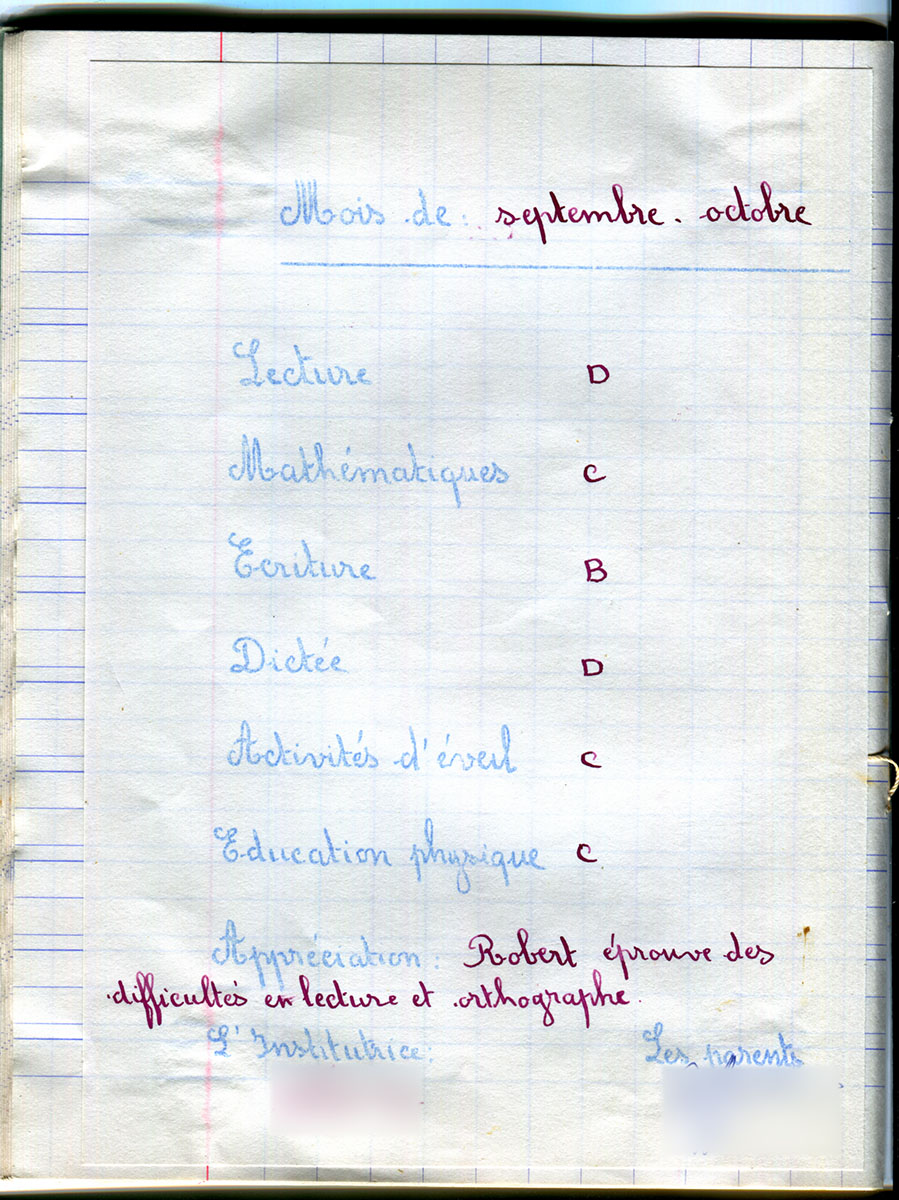 Mois de : septembre. octobre
Lecture D
Mathématiques C
Ecriture B
Dictée D
Activités d'éveil C
Education physique C
Appréciation : Robert éprouve des
difficultés en lecture et orthographe.
L'Institutrice : Les parents